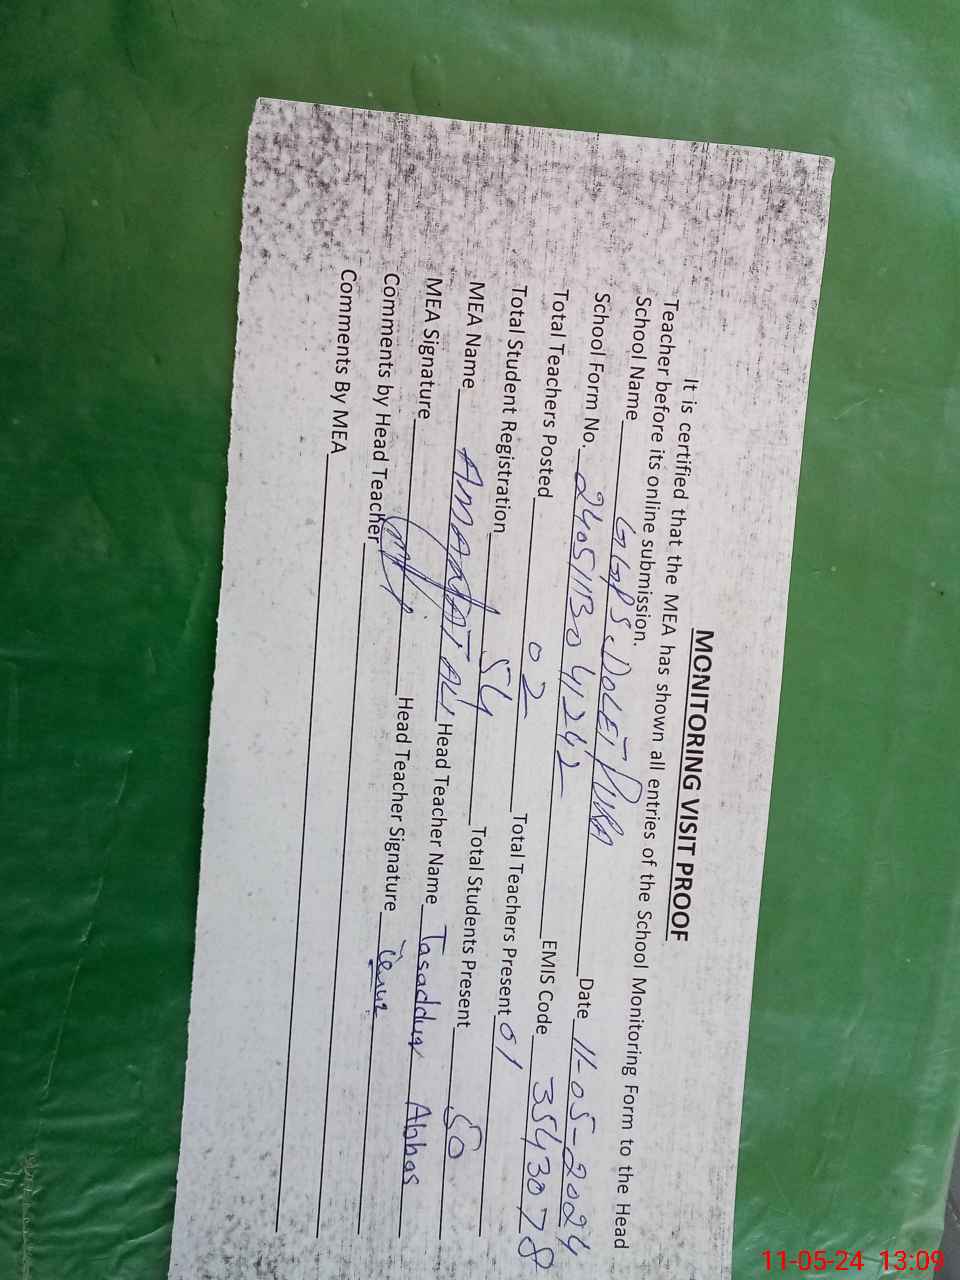 MONITORING VISIT PROOF
It is certified that the MEA has shown all entries of the School Monitoring Form to the Head
Teacher before its online submission.
School Name GGPS. DOLET PURA Date 11-05-2024
School Form No. 24051130 41242 EMIS Code 3543078
Total Teachers Posted 02 Total Teachers Present 01
Total Student Registration 54 Total Students Present 50
MEA Name AMANAT ALI Head Teacher Name Tasadduq Abbas
MEA Signature Head Teacher Signature
Comments by Head Teacher
Comments By MEA
11-05-24 13:09